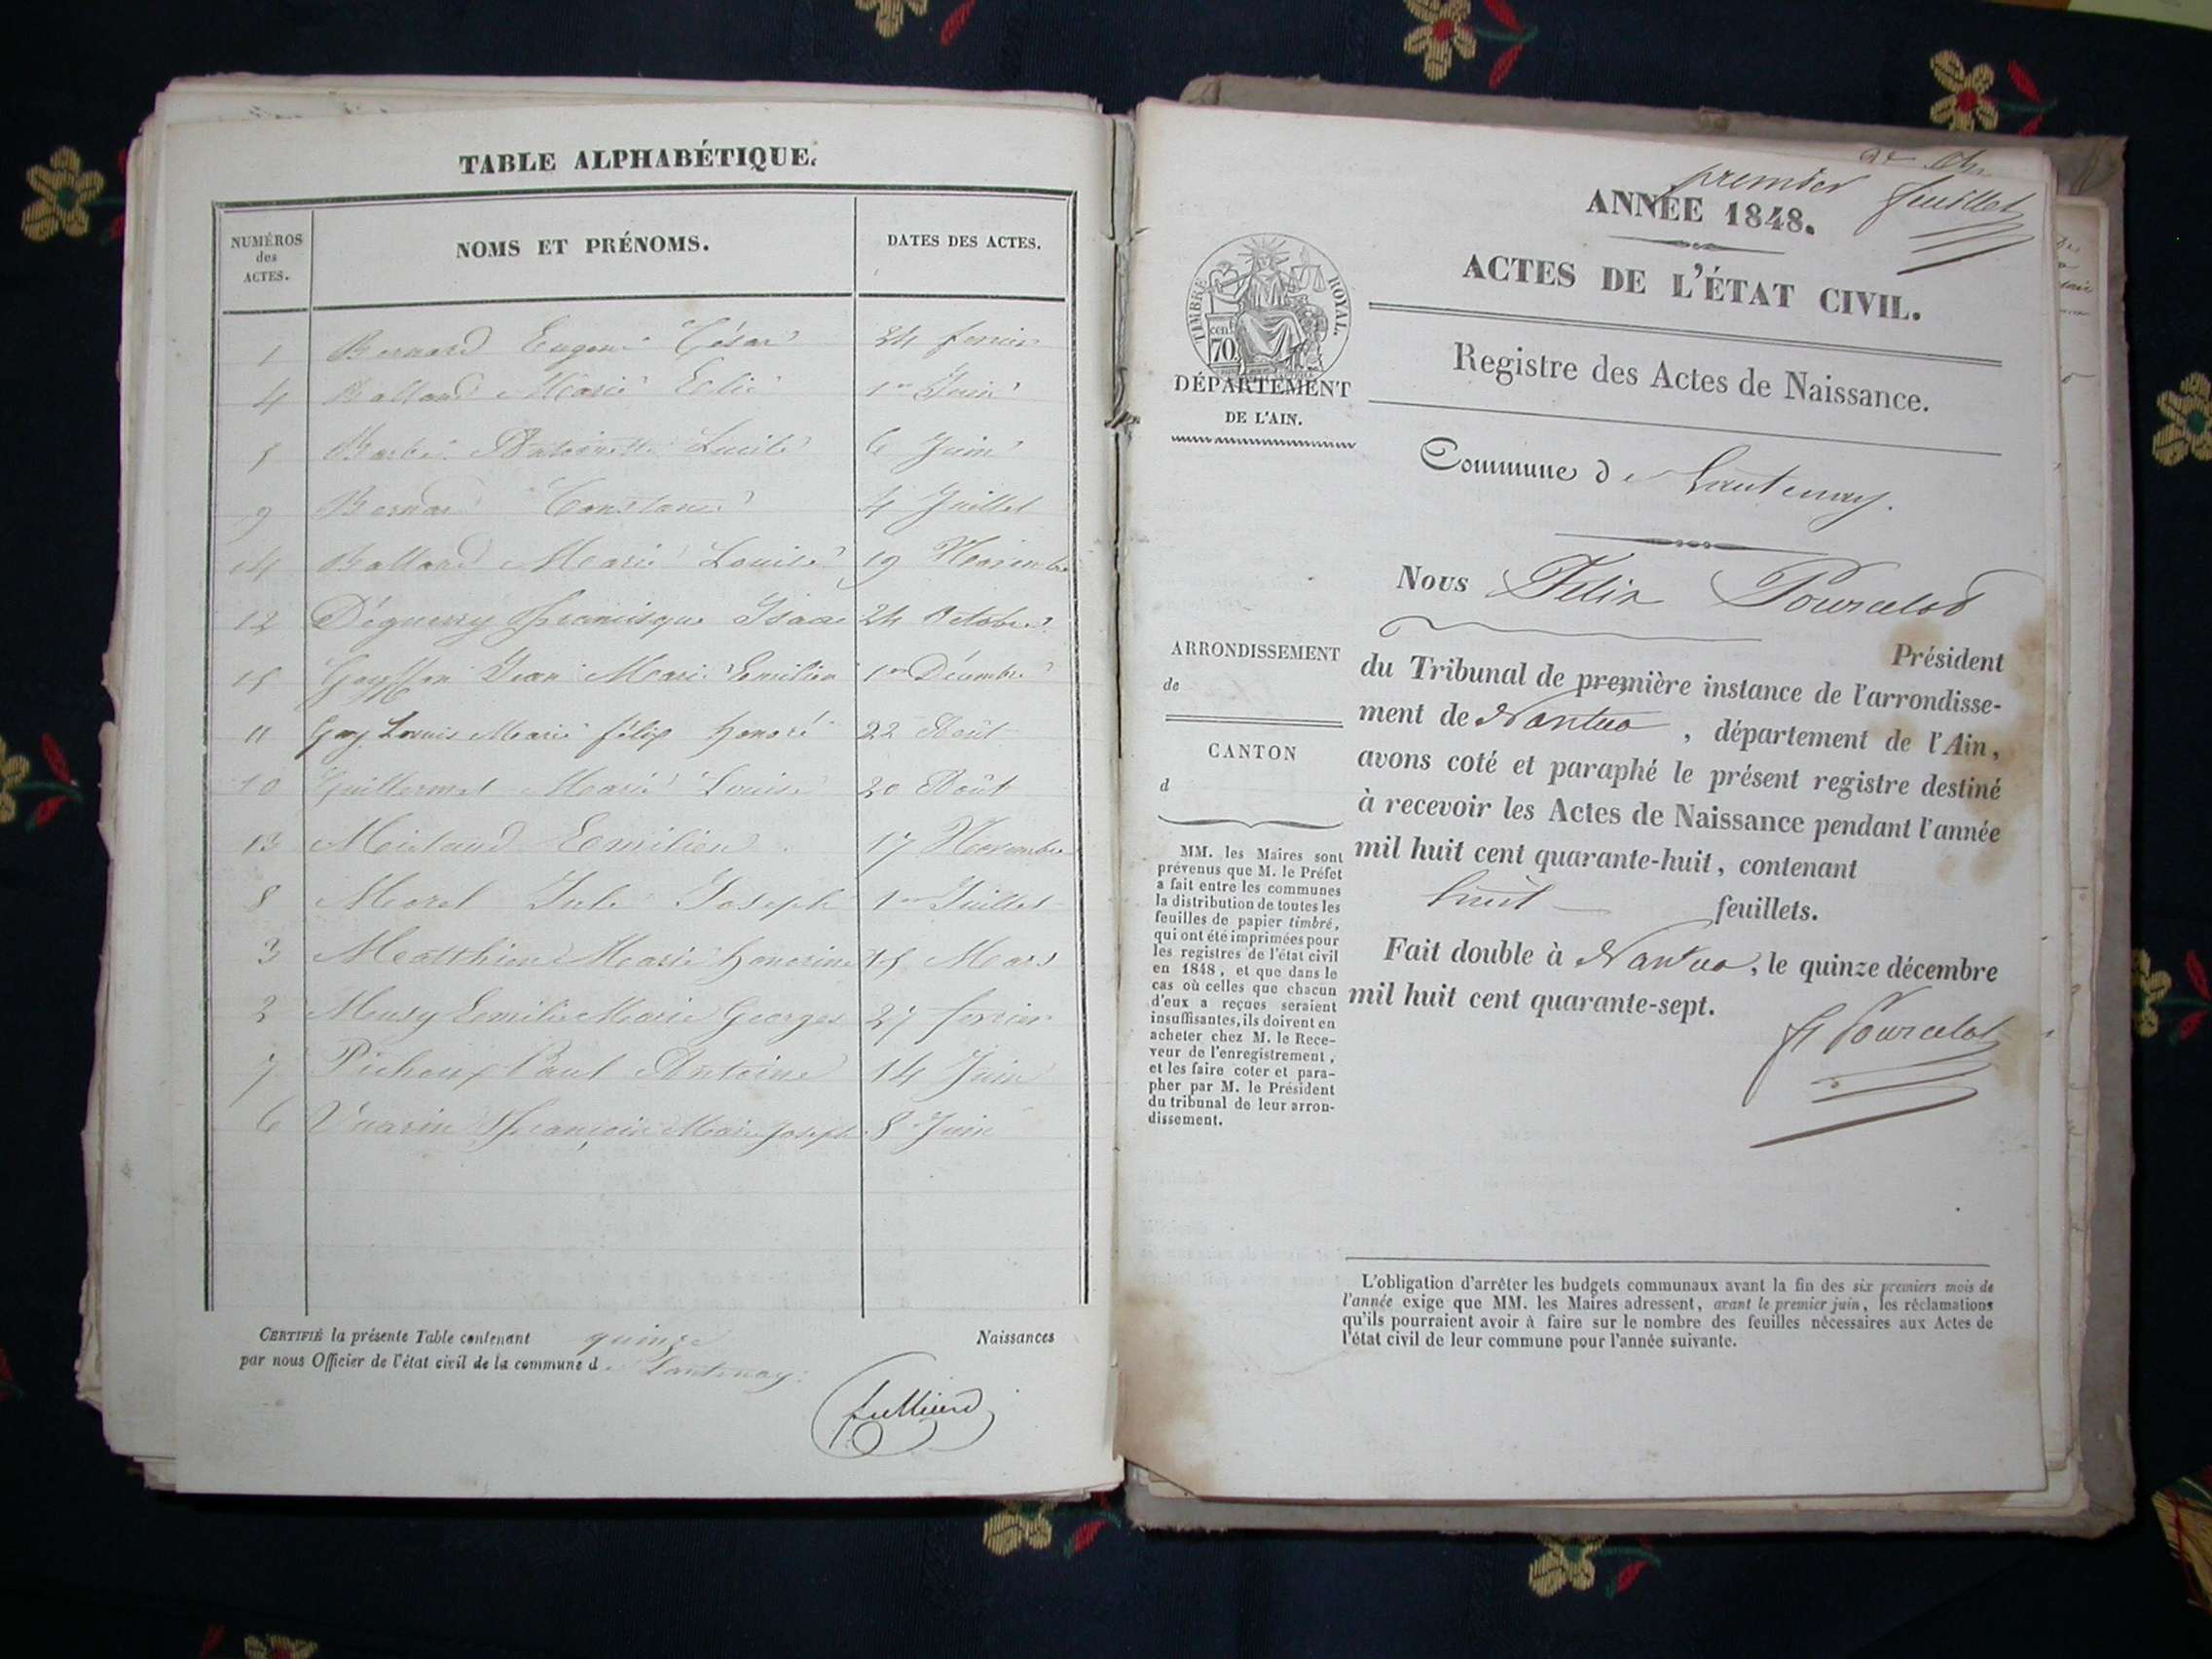 TABLE ALPHABÉTIQUE.
NUMÉROS
des
ACTES.
NOMS ET PRÉNOMS.
DATES DES ACTES.
1 Bernard Eugene César 24 fevrier
4 Balland Marie 1er Juin
5 Barbe Antoinette Lucile 6 Juin
9 Bernard Constance 4 Juillet
14 Balland Marie Louise 19 Novembre
12 Déguerry Francisque Isaac 24 Octobre
15 Jean Marie Emilien 1er Décembre
11 Guy Louis Marie félix honoré 22 Août
10 Guillermet Marie Louise 20 Août
13 Emilien 17 Novembre
8 Morel Jule Joseph 1er Juillet
3 Matthieu Marie honorine 15 Mars
2 Musy Emilie Marie Georges 27 fevrier
7 Pichoux Paul Antoine 14 Juin
6 Vuarin François Marie Joseph 8 Juin
CERTIFIÉ la présente Table contenant quinze Naissances
par nous Officier de l'état civil de la commune de Lantenay.
premier feuillet
ANNÉE 1848.
ACTES DE L'ÉTAT CIVIL.
TIMBRE ROYAL.
cent
70
DÉPARTEMENT
DE L'AIN.
Registre des Actes de Naissance.
Commune de Lantenay.
Nous Félix Pourcelot
Président
ARRONDISSEMENT
de
CANTON
d
du Tribunal de première instance de l'arrondisse-
ment de Nantua, département de l'Ain,
avons coté et paraphé le présent registre destiné
à recevoir les Actes de Naissance pendant l'année
mil huit cent quarante-huit, contenant
huit feuillets.
Fait double à Nantua, le quinze décembre
mil huit cent quarante-sept.
Pourcelot
MM. les Maires sont
prévenus que M. le Préfet
a fait entre les communes
la distribution de toutes les
feuilles de papier timbré,
qui ont été imprimées pour
les registres de l'état civil
en 1848, et que dans le
cas où celles que chacun
d'eux a reçues seraient
insuffisantes, ils doivent en
acheter chez M. le Rece-
veur de l'enregistrement,
et les faire coter et para-
pher par M. le Président
du tribunal de leur arron-
dissement.
L'obligation d'arrêter les budgets communaux avant la fin des six premiers mois de
l'année exige que MM. les Maires adressent, avant le premier juin, les réclamations
qu'ils pourraient avoir à faire sur le nombre des feuilles nécessaires aux Actes de
l'état civil de leur commune pour l'année suivante.